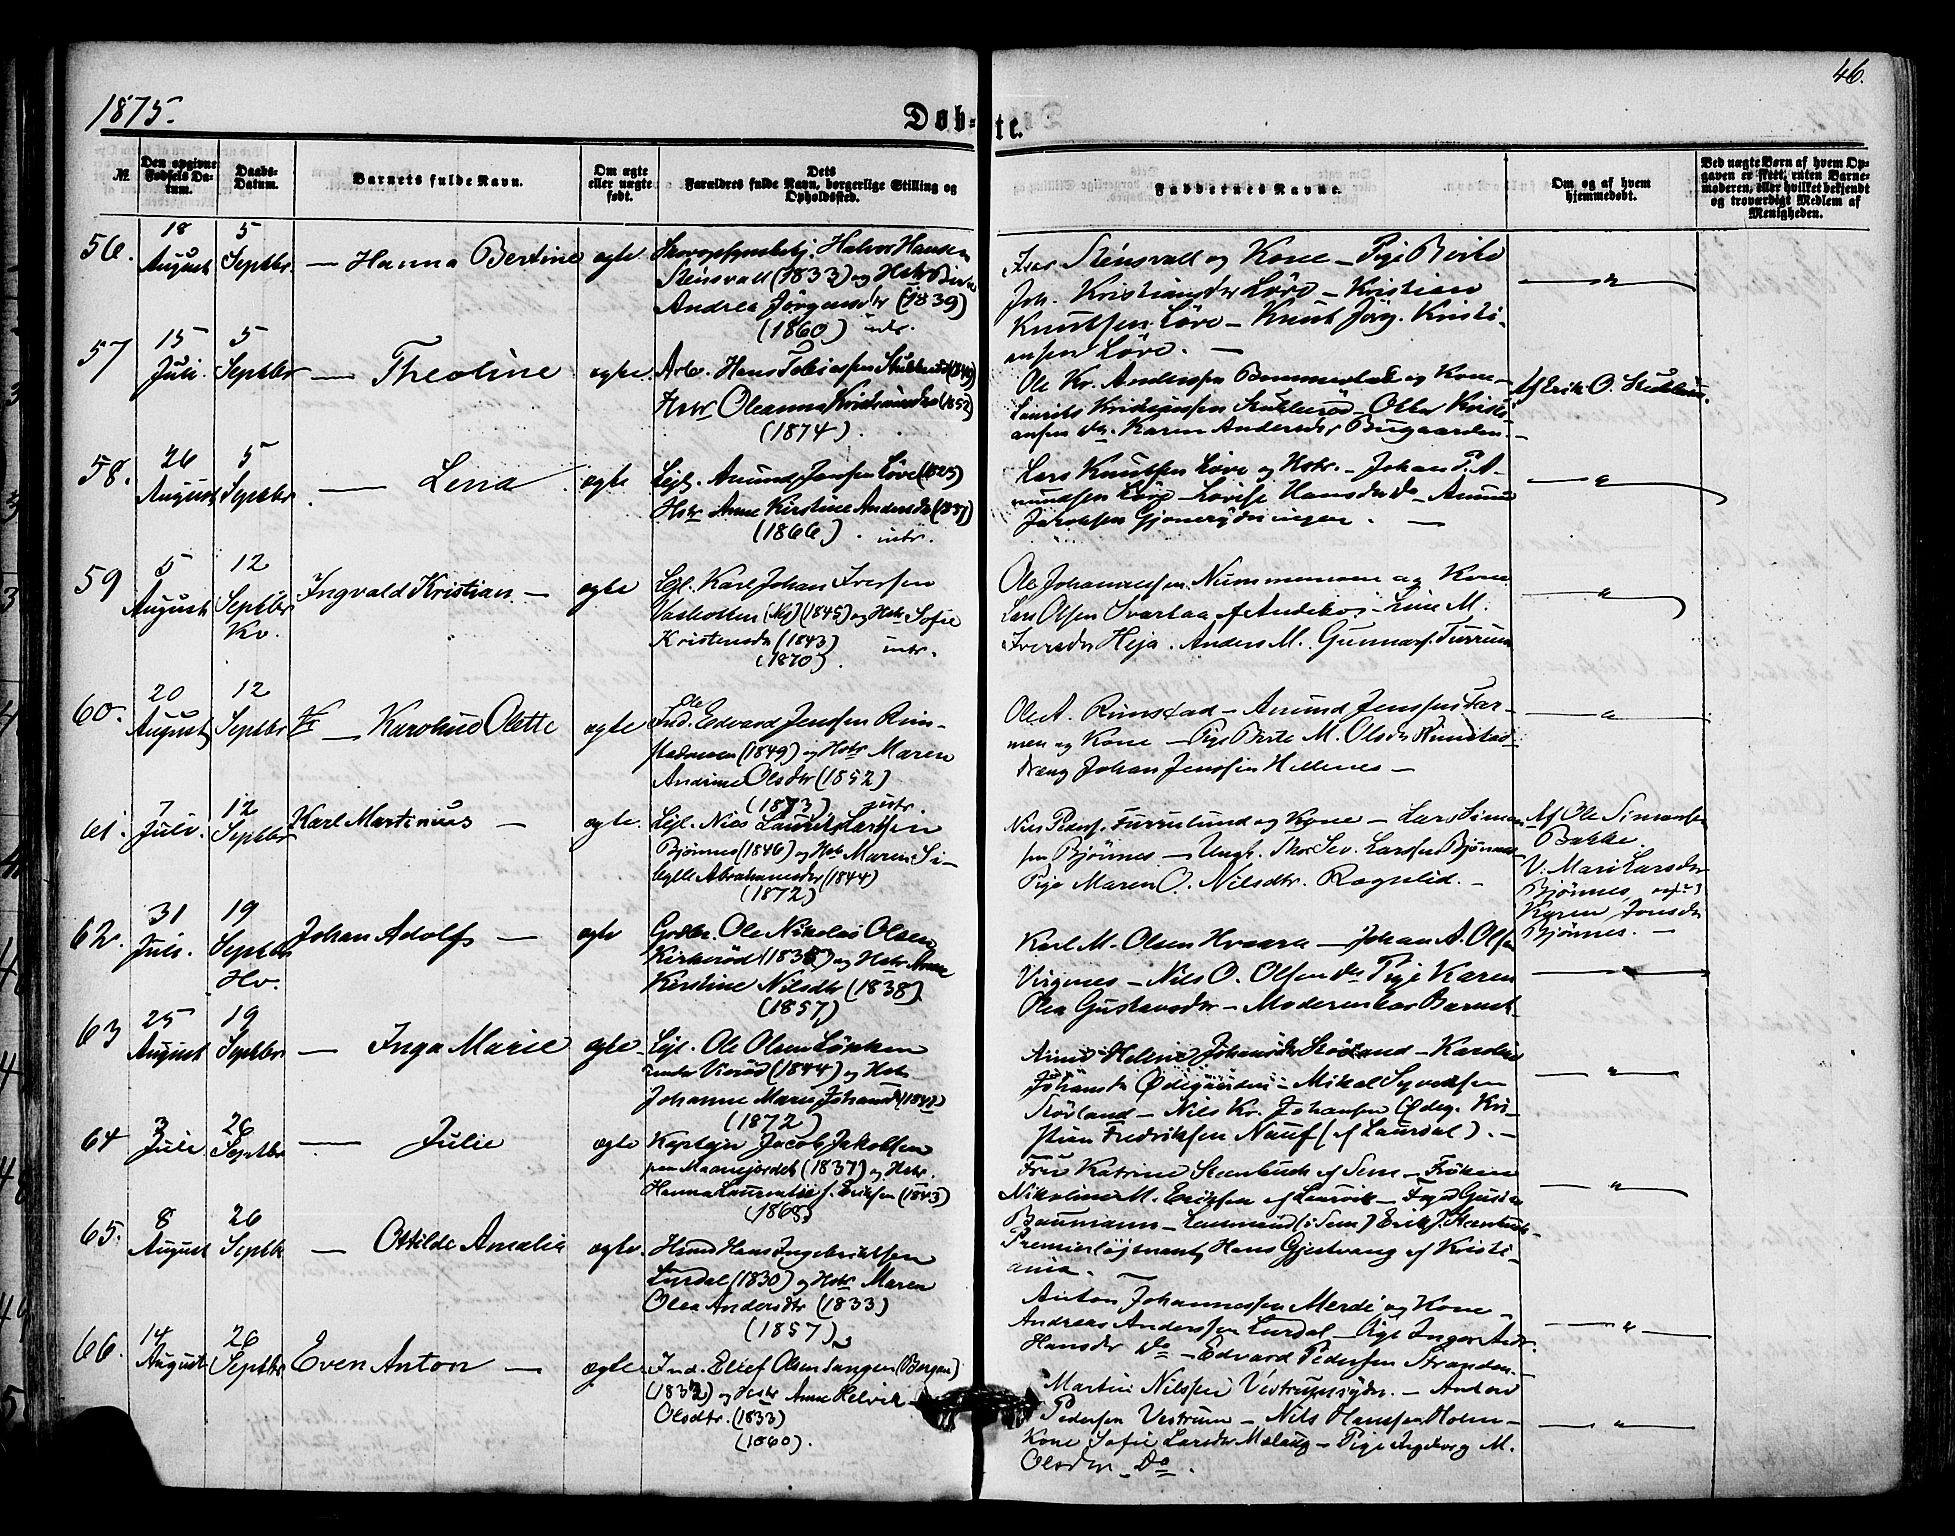 1875.
Døbte.
46.
№
Den opgivne Fødsels Datum.
Daabs-Datum.
Barnets fulde Navn.
Om ægte eller uægte født.
Dets Forældres fulde Navn, borgerlige Stilling og Opholdssted.
Faddernes Navne.
Om og af hvem hjemmedøbt.
Ved uægte Børn af hvem Opgaven er skeet, enten Barnemoderen, eller hvilket bekjendt og troværdigt Medlem af Menigheden.
56. 18 August 5 Septbr — Hanna Bertine ægte
Halvor Hansen
Stensvall (1833) og Hstr
Andrea Jörgensdtr (1839)
(1860) intr.
Stensvall og Kone — Pige Berte
Joh. Kristiansdtr Løve — Kristian
Knutsen Løve — Knut Jörg. Kristi-
ansen Løve. —
57 15 Juli. 5 Septbr — Theoline ægte
Arb. Hans Tobiassen
Hstr Oleanna (1852)
(1874).
Ole Kr. Anderssen og Kone —
Laurits Kristianssen — Kristi-
ansen do. Karen Andersdtr Bugaarden. —
Af Erik O.
58. 26 August 5 Septbr. — Lena ægte
Lejl. Amund Jensen Løve (1825)
Hstr Anne Kirstine Andersdr (1837)
(1866). intr.
Lars Knutsen Løve og Hstr. — Johan P. A-
mundsen Løve — Lovise Hansdtr do —
Jakobsen —
59 5 August 12 Septbr Kv. Ingvald Kristian — ægte
Lejl. Karl Johan Iversen
(1845) og Hstr Sofie
Kristensdr (1843) intr.
(1870).
Ole Johannessen og Kone
Lars Olsen Svartaa af Andebo — Line M.
Iversdtr Heja. Anders M. Gunnars.
60. 20 August 12 Septbr — Karoline Olette ægte
Ole
Ind. Edvard Jenssen Rim-
(1849) og Hstr Maren
Andrine Olsdtr (1852)
(1873) intr.
Ole A. Rimstad — Amund Jenssen
og Kone — Pige Berte M. Olsdr Rimstad
Dreng Johan Jenssen Hellenes —
61. 7 Juli. 12 Septbr Karl Martinius — ægte.
Lejl. Nils Laurits Larssen
Bjønnes (1846) og Hstr Maren Si-
bylle Abrahamsdtr (1844)
(1872)
Nils Peders. Furrulund og Kone — Lars Simen-
sen Bjønnes — Ungk. Thor Sev. Larssen Bjønnes
Pige Maren O. Nilsdtr. Rognlid. —
Af Ole Simensen
Bakke
V. Mari Larsdr
Bjønnes, og
Karen Jonsdr
Bjønnes. —
62. 31 Juli. 19 Septbr Hv. Johan Adolf — ægte
Grdbr. Ole Nikolai Olsen
Kirkerød og Hstr Anne
Kirstine Nilsdtr (1838)
(1857)
Karl M. Olsen Hvaara — Johan A. Olsen
Virgenes — Nils O. Olsen do Pige Karen
Olea Gustavsdtr — Moderen bar Barnet.
63 25 August 19 Septbr — Inga Marie ægte
Lejl. Ole Olsen Løkken
under (1844) og Hstr
Johanne Marie Johansdr
(1872)
Anne Helene Johansdtr — Karoline
Johansdr Ødegaarden — Mikal Syvertsen
— Nils Kr. Johansen Ødeg. Kri-
stian Fredriksen Nauf (af Laurdal). —
64 3 Juli 26 Septbr — Julie ægte
Kaptejn Jacob Jakobsen
(1837) og Hstr.
Hanna f. Eriksen (1843)
Fru Katrine Steenbuch af Sem — Frøken
Nikoline M. Eriksen af Laurvik — Frøken
Baumann — Lensmand (i Sem) Erik J. Steenbuch
Premierløjtnant Hans Gjestvang af Kristi-
ania. —
65. 8 August 26 Septbr — Ottilde Amalia ægte
Hans Ingebriktsen
Lurdal (1830) og Hstr Maren
Olea Andersdtr (1833)
(1857)
Anton Johannessen Merde og Kone —
Andreas Anderssen Lurdal — Pige Inger
Hansdr Do — Edvard Pedersen Stranden.
66. 14 August 26 Septbr Even Anton — ægte
Ind. Ellef Olsen (Bergan)
og Hstr Anne Helvik
Olsdtr. (1833)
(1860).
Martin Nilssen — Anton
Pedersen Vestrum — Nils Hanssen Holm —
Kone Sofie Larsdtr — Pige Ingeborg M.
Olsdtr — Do.